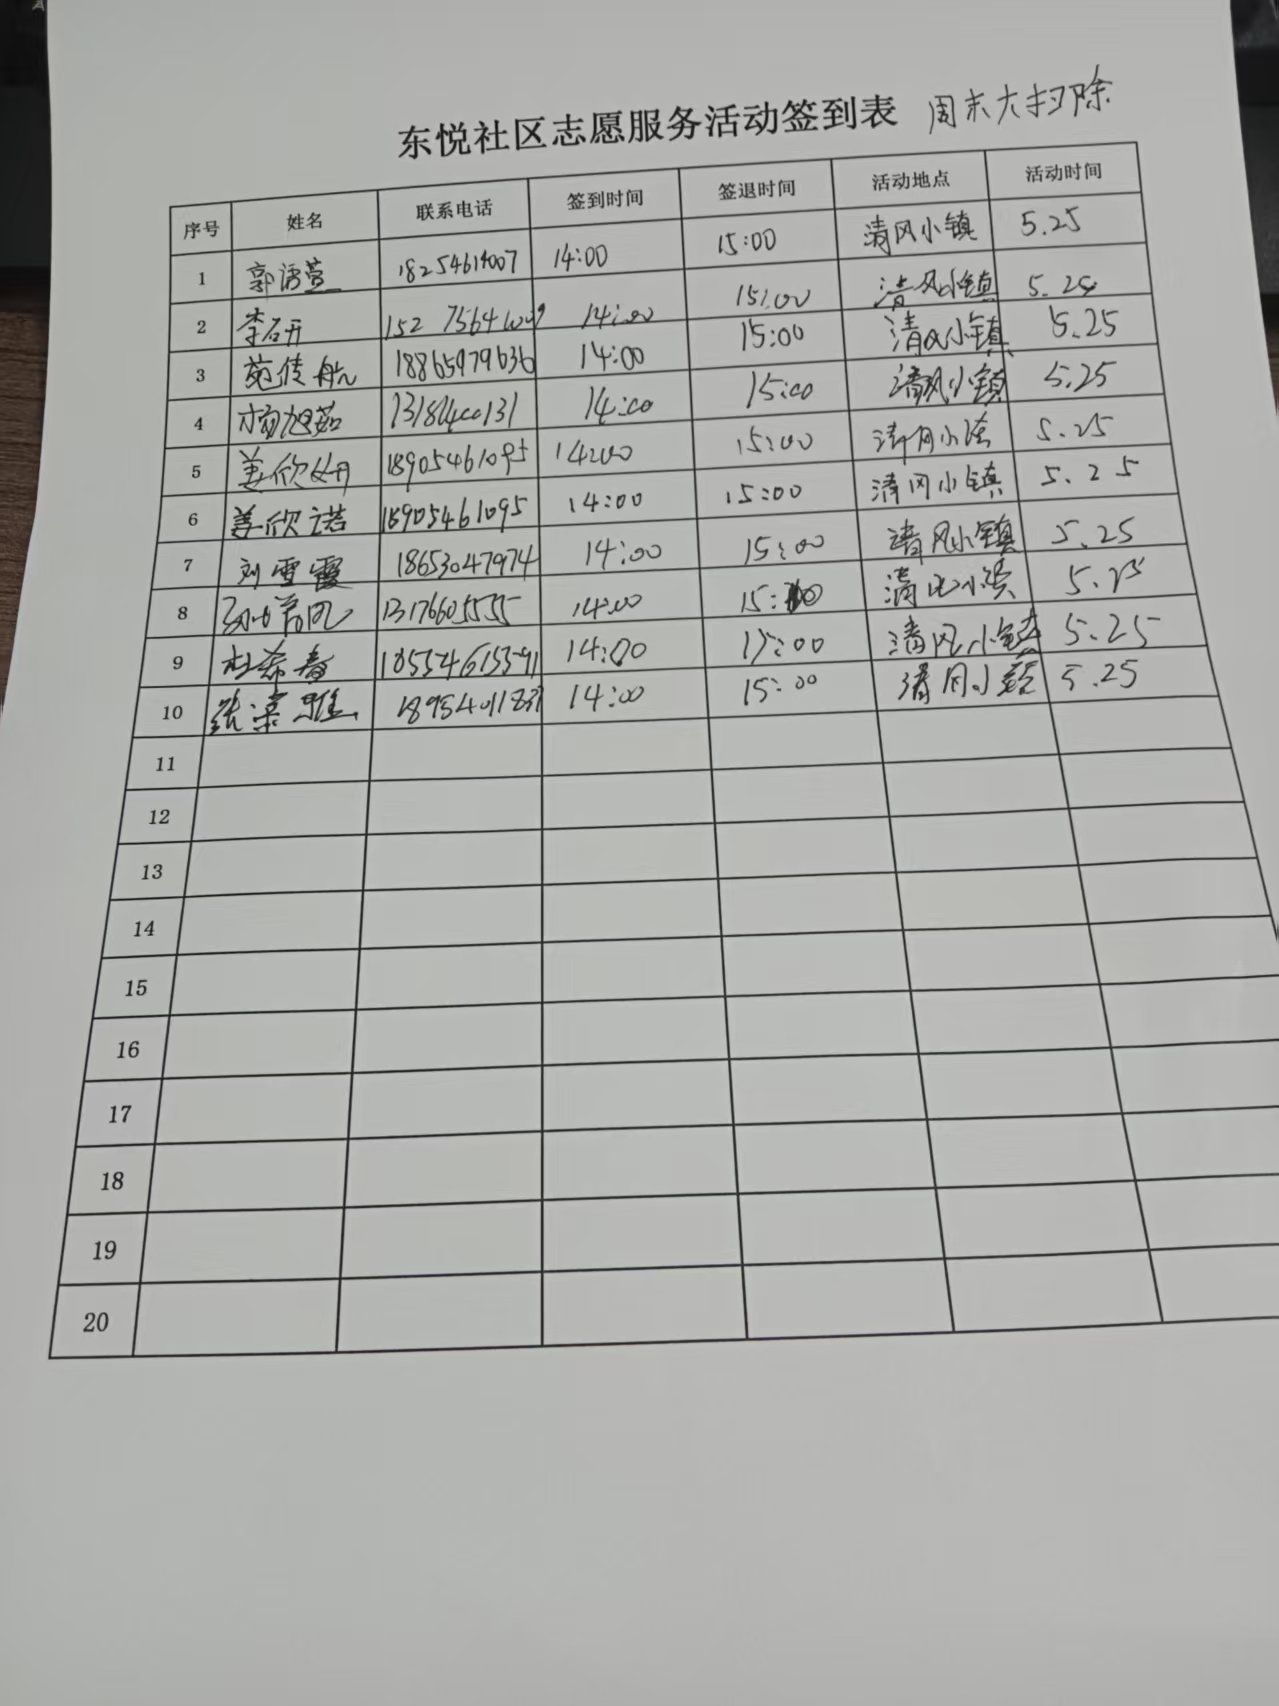 东悦社区志愿服务活动签到表 周末大扫除
序号 姓名 联系电话 签到时间 签退时间 活动地点 活动时间
1 郭语萱 18254614007 14:00 15:00 清风小镇 5.25
2 李妍 152 7564 14:00 15:00 清风小镇 5.25
3 苑传航 18865979636 14:00 15:00 清风小镇 5.25
4 杨旭茹 14:00 15:00 清风小镇 5.25
5 姜欣妍 18905461095 14:00 15:00 清风小镇 5.25
6 姜欣诺 18905461095 14:00 15:00 清风小镇 5. 2 5
7 刘雪霞 18653047974 14:00 15:00 清风小镇 5.25
8 13176605535 14:00 15:00 清风小镇 5.25
9 杜希春 14:00 15:00 清风小镇 5.25
10 张 雅 14:00 15:00 清风小镇 5.25
11
12
13
14
15
16
17
18
19
20